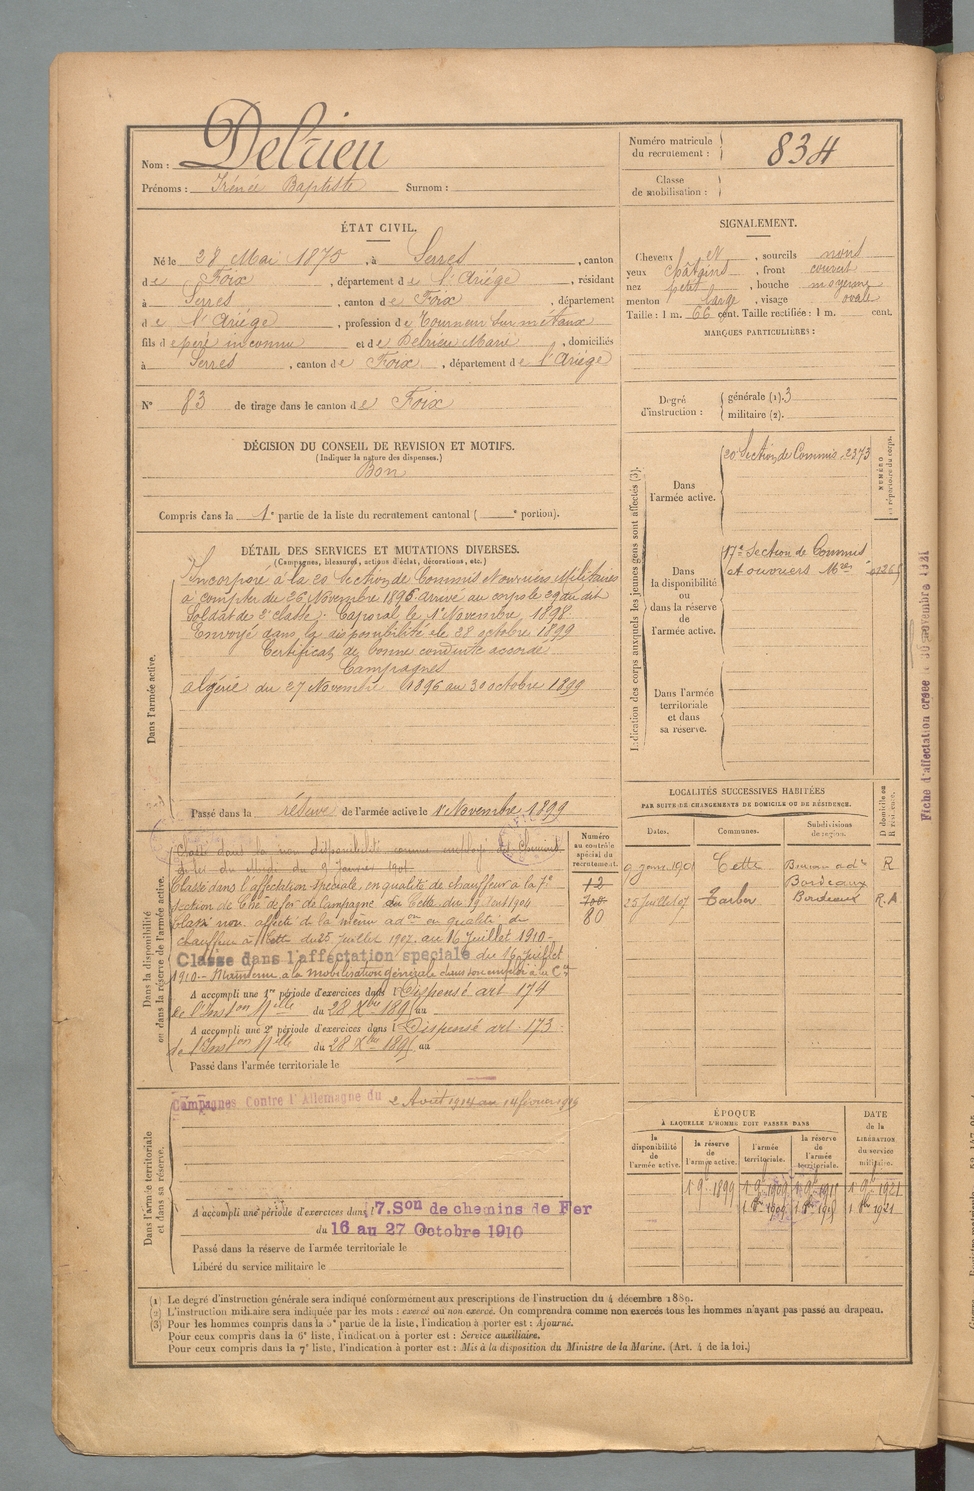 Nom : Delrieu
Prénoms : Irénée Baptiste Surnom :
Numéro matricule du recrutement : 834
Classe de mobilisation :
ÉTAT CIVIL.
Né le 28 Mai 1875, à Serres, canton
de Foix, département de l'Ariège, résidant
à Serres, canton de Foix, département
de l'Ariège, profession de Tourneur sur métaux
fils de père inconnu et de Delrieu Marie, domiciliés
à Serres, canton de Foix, département de l'Ariège
N° 83 de tirage dans le canton de Foix
SIGNALEMENT.
Cheveux et, sourcils noirs
yeux châtains, front couvert
nez petit, bouche moyenne
menton large, visage ovale
Taille : 1 m. 66 cent. Taille rectifiée : 1 m. cent.
MARQUES PARTICULIÈRES :
Degré d'instruction : générale (1). 3
militaire (2).
DÉCISION DU CONSEIL DE REVISION ET MOTIFS.
(Indiquer la nature des dispenses.)
Bon
Compris dans la 1e partie de la liste du recrutement cantonal ( e portion).
DÉTAIL DES SERVICES ET MUTATIONS DIVERSES.
(Campagnes, blessures, actions d'éclat, décorations, etc.)
Dans l'armée active.
Incorporé à la 20 Section de Commis et ouvriers Militaires
à compter du 26 Novembre 1896 arrivé au corps le 29 du dit
Soldat de 2e classe. Caporal le 1er Novembre 1898
Envoyé dans la disponibilité le 28 octobre 1899
Certificat de bonne conduite accordé
Campagnes
Algérie du 27 Novembre 1896 au 30 octobre 1899
Passé dans la réserve de l'armée active le 1er Novembre 1899
Indication des corps auxquels les jeunes gens sont affectés (3).
NUMÉRO au répertoire du corps.
Dans l'armée active. 20 Section de Commis 2373
Dans la disponibilité ou dans la réserve de l'armée active.
17e Section de Commis
et ouvriers Mres
Dans l'armée territoriale et dans sa réserve.
Fiche d'affectation créée 30 novembre 1921
LOCALITÉS SUCCESSIVES HABITÉES
PAR SUITE DE CHANGEMENTS DE DOMICILE OU DE RÉSIDENCE.
Dates. Communes. Subdivisions de région. D domicile ou R résidence.
1901 Cette R
Bordeaux
25 juillet 07 Tarbes Bordeaux R.A
Dans la disponibilité ou dans la réserve de l'armée active.
Numéro au contrôle spécial du recrutement.
12
700
80
Classé dans la non disponibilité comme employé des Chemins
de fer du Midi du 9 Janvier 1901
Classé dans l'affectation spéciale, en qualité de chauffeur à la 7e
section de Ch. de fer de Campagne
Classé non affecté de la même adon en qualité de
chauffeur à Cette du 25 juillet 1907 au 16 Juillet 1910 -
Classé dans l'affectation spéciale du 16 juillet
1910. - Maintenu à la mobilisation générale dans son emploi à la Cie
A accompli une 1re période d'exercices dans l Dispensé art 174
de l'Inston Mlle du 28 Xbre 1895 au
A accompli une 2e période d'exercices dans l Dispensé art. 173
de l'Inston Mlle du 28 Xbre 1895 au
Passé dans l'armée territoriale le
Dans l'armée territoriale et dans sa réserve.
Campagnes Contre l'Allemagne du 2 Août 1914 au 14 février 1919
A accompli une période d'exercices dans l 7.Son de chemins de Fer
du 16 au 27 Octobre 1910
Passé dans la réserve de l'armée territoriale le
Libéré du service militaire le
ÉPOQUE
À LAQUELLE L'HOMME DOIT PASSER DANS
la disponibilité de l'armée active. la réserve de l'armée active. l'armée territoriale. la réserve de l'armée territoriale. DATE de la LIBÉRATION du service militaire.
1 9bre 1899 1 9bre 1909 1 9bre 1915 1 9bre 1921
1 8bre 1909 1 8bre 1915 1 8bre 1921
(1) Le degré d'instruction générale sera indiqué conformément aux prescriptions de l'instruction du 4 décembre 1889.
(2) L'instruction militaire sera indiquée par les mots : exercé ou non exercé. On comprendra comme non exercés tous les hommes n'ayant pas passé au drapeau.
(3) Pour les hommes compris dans la 5e partie de la liste, l'indication à porter est : Ajourné.
Pour ceux compris dans la 6e liste, l'indication à porter est : Service auxiliaire.
Pour ceux compris dans la 7e liste, l'indication à porter est : Mis à la disposition du Ministre de la Marine. (Art. 4 de la loi.)